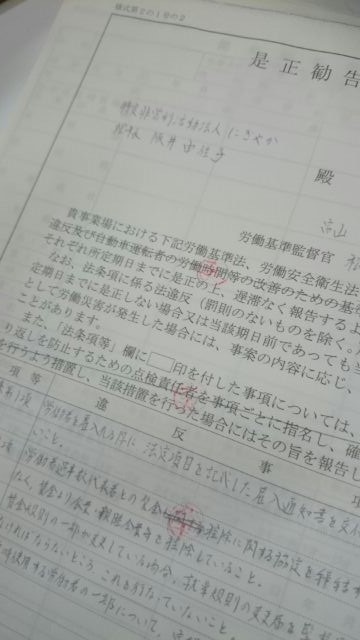 様式第2の1号の2
是正勧告
特定非営利活動法人 にぎやか
理事 阪井 由佳子
殿
労働基準監督官
貴事業場における下記労働基準法、労働安全衛生法
違反及び自動車運転者の労働時間等の改善のための基準
それぞれ所定期日までに是正の上、遅滞なく報告する
なお、法条項に係る法違反（罰則のないものを除く。
定期日までに是正しない場合又は当該期日前であっても当
として労働災害が発生した場合には、事案の内容に応じ、
ことがあります。
また、「法条項等」欄に□印を付した事項については、
り返しを防止するための点検責任者を事項ごとに指名し、確
を行うよう措置し、当該措置を行った場合にはその旨を報告し
項等
違反事項
労働者を雇い入れる際に、法定項目を記載した雇入通知書を交付
いこと。
労働者過半数代表者との賃金控除に関する協定を締結する
なく、賃金より食費、親睦会費等を控除していること。
就業規則の一部が変更している場合、就業規則の変更届を監
なければならないところ、これを行なっていないこと。
使用する労働者の一部について、